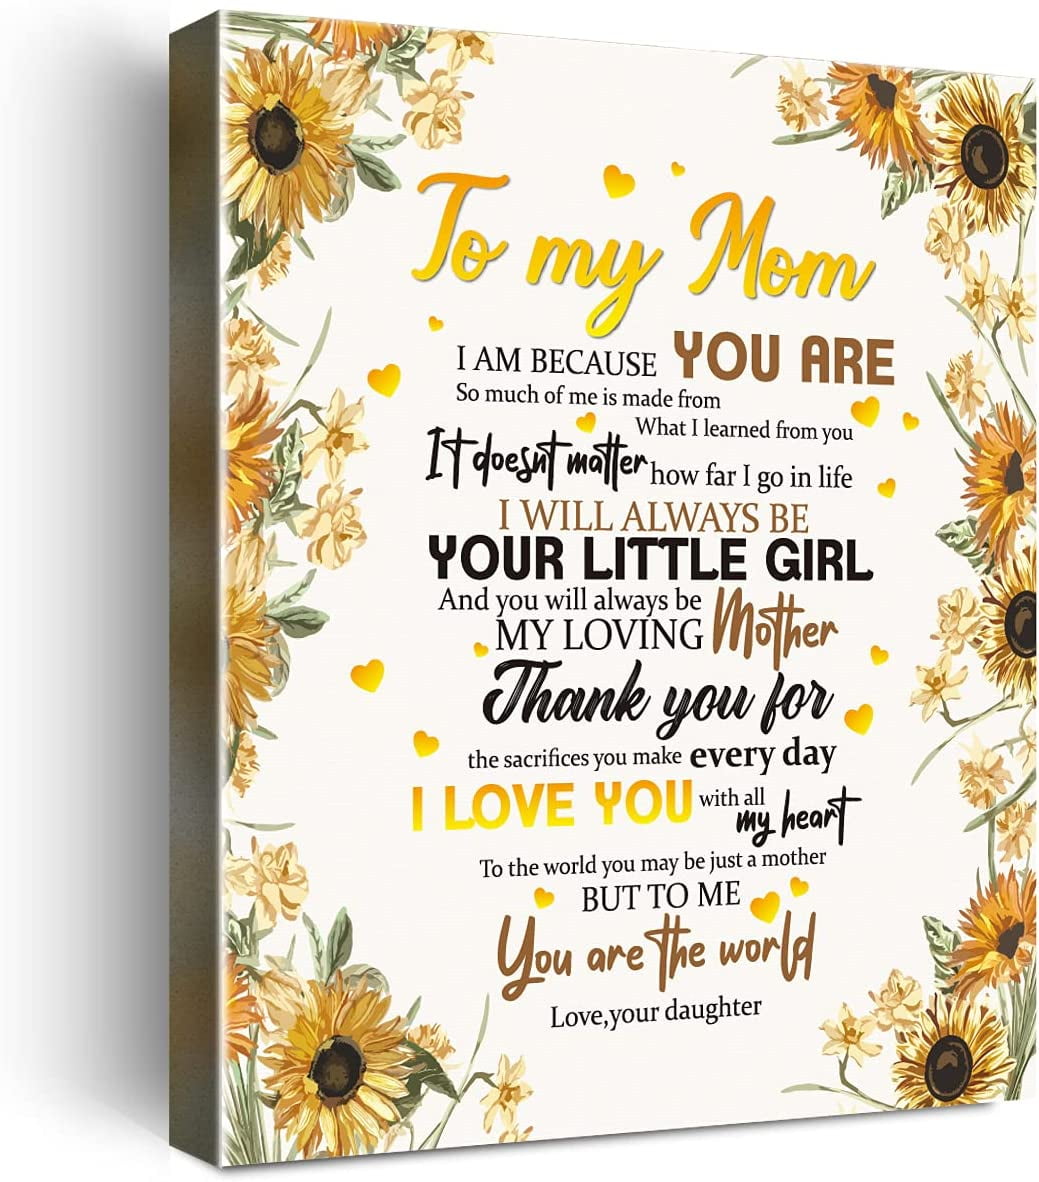 To my Mom
I AM BECAUSE YOU ARE
So much of me is made from
What I learned from you
It doesnt matter how far I go in life
I WILL ALWAYS BE
YOUR LITTLE GIRL
And you will always be
MY LOVING Mother
Thank you for
the sacrifices you make every day
I LOVE YOU with all my heart
To the world you may be just a mother
BUT TO ME
You are the world
Love,your daughter